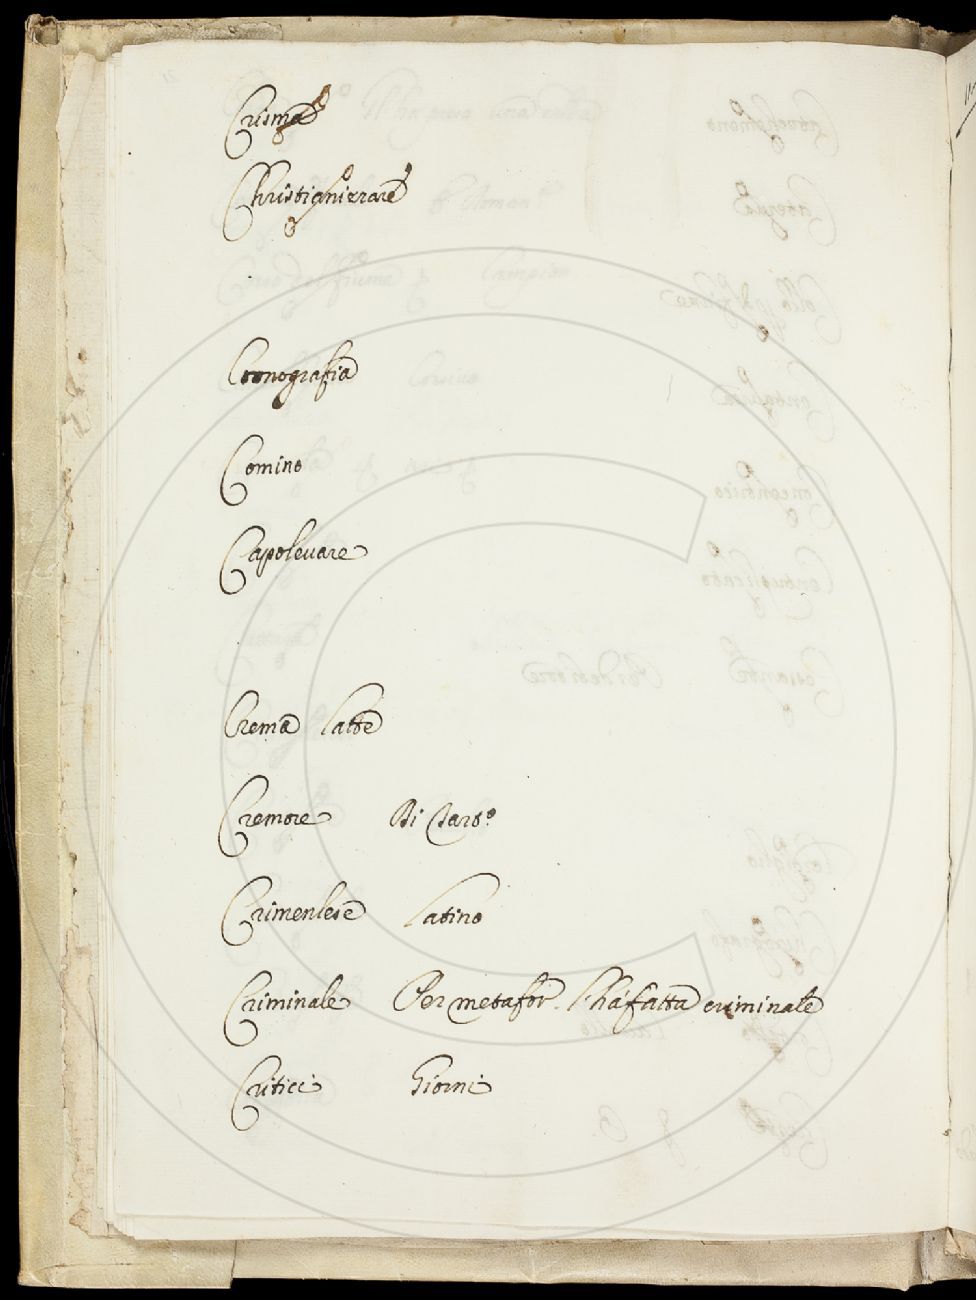 Crisma
Christianizzare
Cronografia
Comino
Capoleuare
Crema latte
Cremore Di Tart.º
Crimenlese latino
Criminale Per metafor. l'hà fatta criminale
Critici Giorni